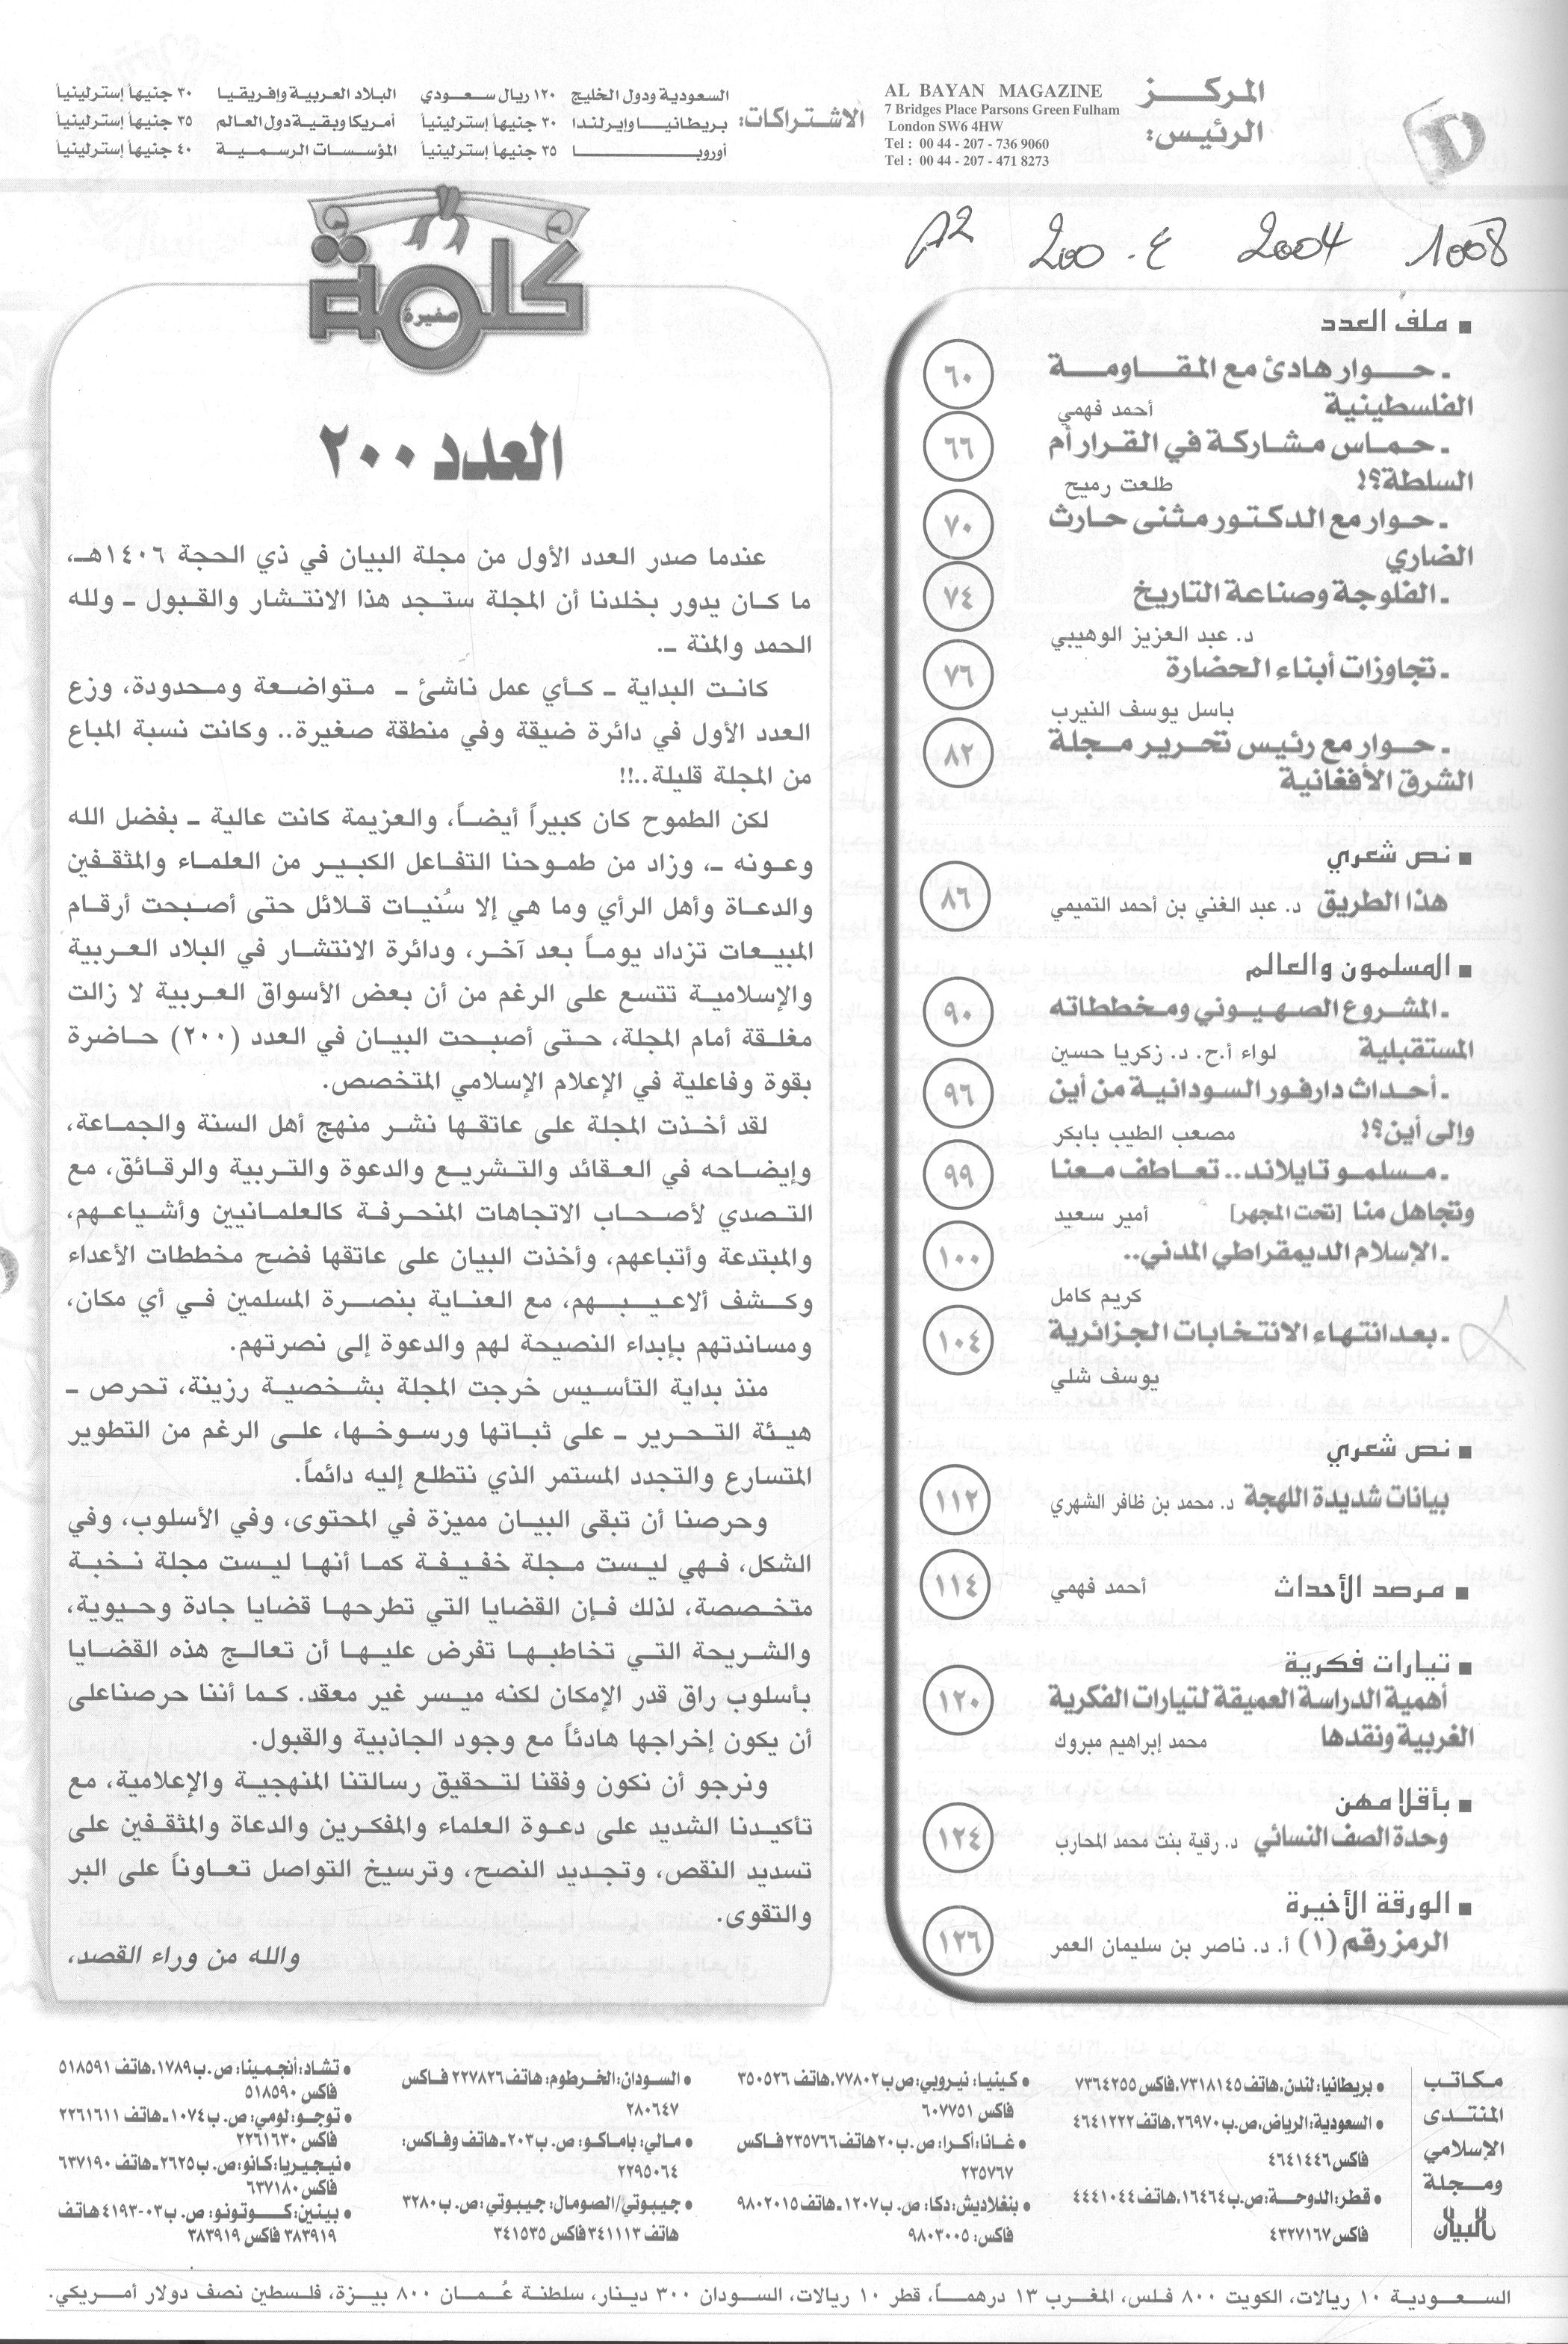 المركز
الرئيس:
AL BAYAN MAGAZINE
7 Bridges Place Parsons Green Fulham
London SW6 4HW
Tel : 00 44 - 207 - 736 9060
Tel : 00 44 - 207 - 471 8273
الاشتراكات:
السعودية ودول الخليج ١٢٠ ريال سعودي
بريطانيا وإيرلندا ٣٠ جنيهاً إسترلينياً
أوروبا ٣٥ جنيهاً إسترلينياً
البلاد العربية وإفريقيا ٣٠ جنيهاً إسترلينياً
أمريكا وبقية دول العالم ٣٥ جنيهاً إسترلينياً
المؤسسات الرسمية ٤٠ جنيهاً إسترلينياً
D
200 . ع 2004 1008
■ ملف العدد
ـ حوار هادئ مع المقاومة
الفلسطينية أحمد فهمي ٦٠
ـ حماس مشاركة في القرار أم
السلطة؟! طلعت رميح ٦٦
ـ حوار مع الدكتور مثنى حارث
الضاري ٧٠
ـ الفلوجة وصناعة التاريخ ٧٤
د. عبد العزيز الوهيبي
ـ تجاوزات أبناء الحضارة ٧٦
باسل يوسف النيرب
ـ حوار مع رئيس تحرير مجلة
الشرق الأفغانية ٨٢
■ نص شعري
هذا الطريق د. عبد الغني بن أحمد التميمي ٨٦
■ المسلمون والعالم
ـ المشروع الصهيوني ومخططاته
المستقبلية لواء أ.ح. د. زكريا حسين ٩٠
ـ أحداث دارفور السودانية من أين
وإلى أين؟! مصعب الطيب بابكر ٩٦
ـ مسلمو تايلاند.. تعاطف معنا
وتجاهل منا [تحت المجهر] أمير سعيد ٩٩
ـ الإسلام الديمقراطي المدني.. ١٠٠
كريم كامل
ـ بعد انتهاء الانتخابات الجزائرية ١٠٤
يوسف شلي
■ نص شعري
بيانات شديدة اللهجة د. محمد بن ظافر الشهري ١١٢
■ مرصد الأحداث أحمد فهمي ١١٤
■ تيارات فكرية
أهمية الدراسة العميقة لتيارات الفكرية
الغربية ونقدها محمد إبراهيم مبروك ١٢٠
■ بأقلامهن
وحدة الصف النسائي د. رقية بنت محمد المحارب ١٢٤
■ الورقة الأخيرة
الرمز رقم (١) أ. د. ناصر بن سليمان العمر ١٢٦
كلمة
صغيرة
العدد ٢٠٠
عندما صدر العدد الأول من مجلة البيان في ذي الحجة ١٤٠٦هـ،
ما كان يدور بخلدنا أن المجلة ستجد هذا الانتشار والقبول ـ ولله
الحمد والمنة ـ.
كانت البداية ـ كأي عمل ناشئ ـ متواضعة ومحدودة، وزع
العدد الأول في دائرة ضيقة وفي منطقة صغيرة.. وكانت نسبة المباع
من المجلة قليلة..!!
لكن الطموح كان كبيراً أيضاً، والعزيمة كانت عالية ـ بفضل الله
وعونه ـ، وزاد من طموحنا التفاعل الكبير من العلماء والمثقفين
والدعاة وأهل الرأي وما هي إلا سُنيات قلائل حتى أصبحت أرقام
المبيعات تزداد يوماً بعد آخر، ودائرة الانتشار في البلاد العربية
والإسلامية تتسع على الرغم من أن بعض الأسواق العربية لا زالت
مغلقة أمام المجلة، حتى أصبحت البيان في العدد (٢٠٠) حاضرة
بقوة وفاعلية في الإعلام الإسلامي المتخصص.
لقد أخذت المجلة على عاتقها نشر منهج أهل السنة والجماعة،
وإيضاحه في العقائد والتشريع والدعوة والتربية والرقائق، مع
التصدي لأصحاب الاتجاهات المنحرفة كالعلمانيين وأشياعهم،
والمبتدعة وأتباعهم، وأخذت البيان على عاتقها فضح مخططات الأعداء
وكشف ألاعيبهم، مع العناية بنصرة المسلمين في أي مكان،
ومساندتهم بإبداء النصيحة لهم والدعوة إلى نصرتهم.
منذ بداية التأسيس خرجت المجلة بشخصية رزينة، تحرص ـ
هيئة التحرير ـ على ثباتها ورسوخها، على الرغم من التطوير
المتسارع والتجدد المستمر الذي نتطلع إليه دائماً.
وحرصنا أن تبقى البيان مميزة في المحتوى، وفي الأسلوب، وفي
الشكل، فهي ليست مجلة خفيفة كما أنها ليست مجلة نخبة
متخصصة، لذلك فإن القضايا التي تطرحها قضايا جادة وحيوية،
والشريحة التي تخاطبها تفرض عليها أن تعالج هذه القضايا
بأسلوب راق قدر الإمكان لكنه ميسر غير معقد. كما أننا حرصنا على
أن يكون إخراجها هادئاً مع وجود الجاذبية والقبول.
ونرجو أن نكون وفقنا لتحقيق رسالتنا المنهجية والإعلامية، مع
تأكيدنا الشديد على دعوة العلماء والمفكرين والدعاة والمثقفين على
تسديد النقص، وتجديد النصح، وترسيخ التواصل تعاوناً على البر
والتقوى.
والله من وراء القصد،
مكاتب
المنتدى
الإسلامي
ومجلة
البيان
● بريطانيا: لندن، هاتف ٧٣١٨١٤٥، فاكس ٧٣٦٤٢٥٥
● السعودية: الرياض، ص.ب ٢٦٩٧٠، هاتف ٤٦٤١٢٢٢
فاكس ٤٦٤١٤٤٦
● قطر: الدوحة: ص.ب ١٦٤٦٤، هاتف ٤٤٤١٠٤٤
فاكس ٤٣٢٧١٦٧
● كينيا: نيروبي: ص ب ٧٧٨٠٢، هاتف ٣٥٠٥٢٦
فاكس ٦٠٧٧٥١
● غانا: أكرا: ص.ب ٢٠ هاتف ٢٣٥٧٦٦ فاكس
٢٣٥٧٦٧
● بنغلاديش: دكا: ص. ب ١٢٠٧ ـ هاتف ٩٨٠٢٠١٥
فاكس: ٩٨٠٣٠٠٥
● السودان: الخرطوم: هاتف ٢٢٧٨٢٦ فاكس
٢٨٠٦٤٧
● مالي: باماكو: ص. ب ٢٠٣ ـ هاتف وفاكس:
٢٢٩٥٠٦٤
● جيبوتي/الصومال: جيبوتي: ص. ب ٣٢٨٠
هاتف ٣٤١١١٣ فاكس ٣٤١٥٣٥
● تشاد: أنجمينا: ص. ب ١٧٨٩، هاتف ٥١٨٥٩١
فاكس ٥١٨٥٩٠
● توجو: لومي: ص. ب ١٠٧٤ ـ هاتف ٢٢٦١٦١١
فاكس ٢٢٦١٦٣٠
● نيجيريا: كانو: ص. ب ٢٦٢٥ ـ هاتف ٦٣٧١٩٠
فاكس ٦٣٧١٨٠
● بينين: كوتونو: ص. ب ٠٣-٤١٩٣ هاتف
٣٨٣٩١٩ فاكس ٣٨٣٩١٩
السعودية ١٠ ريالات، الكويت ٨٠٠ فلس، المغرب ١٣ درهماً، قطر ١٠ ريالات، السودان ٣٠٠ دينار، سلطنة عُمان ٨٠٠ بيزة، فلسطين نصف دولار أمريكي.